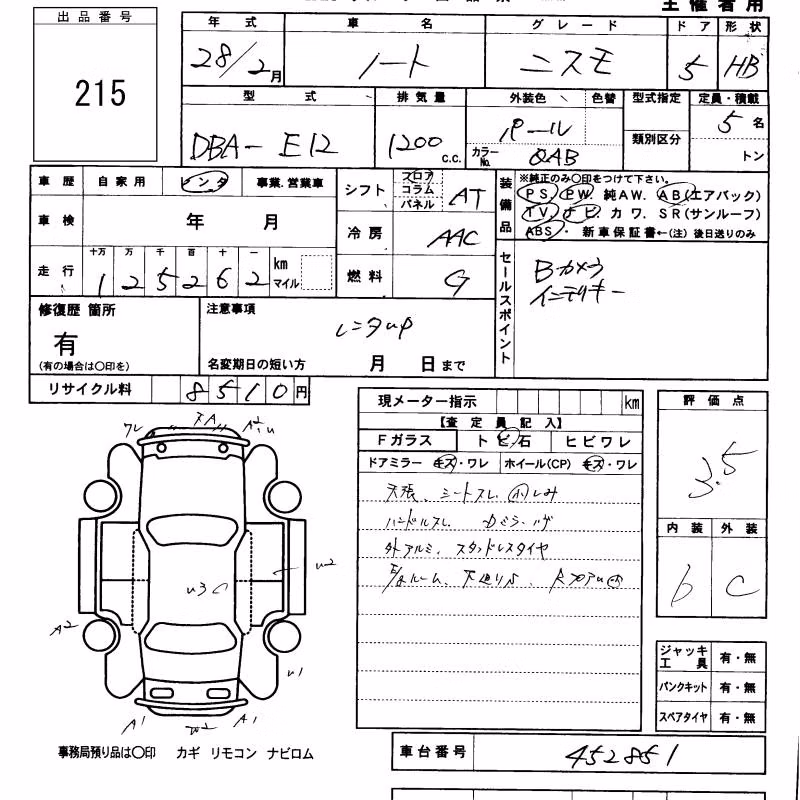 主催者用
出品番号
215
年式 車名 グレード ドア 形状
28/2月 ノート ニスモ 5 HB
型式 排気量 外装色 色替 型式指定 定員・積載
DBA-E12 1200 c.c. パール 類別区分 5名
カラーNo. QAB トン
車歴 自家用 レンタ 事業.営業車
車検 年 月
走行 十万 万 千 百 十 一
1 2 5 2 6 2 km マイル
シフト フロア コラム パネル AT
冷房 AAC
燃料 G
装備品
※純正のみ〇印をつけて下さい。
PS. PW. 純AW. AB(エアバック)
TV. ナビ. カワ. SR(サンルーフ)
ABS ・ 新車保証書←(注) 後日送りのみ
セールスポイント
Bカメラ
インテリキー
修復歴 箇所
有
(有の場合は〇印を)
注意事項
レンタup
名変期日の短い方 月 日まで
リサイクル料 8510円
現メーター指示 km
【査定員記入】
Fガラス トビ石 ヒビワレ
ドアミラー キズ・ワレ ホイール(CP) キズ・ワレ
天張、シートスレ しみ
ハンドルスレ ドミラーハゲ
外アルミ、スタッドレスタイヤ
ルーム、下廻りS、
評価点
3.5
内装 外装
b C
ジャッキ工具 有・無
パンクキット 有・無
スペアタイヤ 有・無
ワレ XA
U2
U3
A2
U1
A1 W2 A1
事務局預り品は〇印 カギ リモコン ナビロム
車台番号 452851